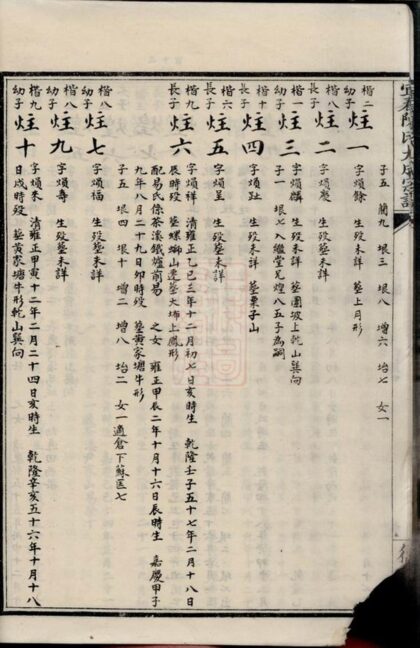 子五 簡九 垠三 垠八 增六 坮七 女一
楷二幼子 炷一 字煩餘 生歿未詳 塟上月形
楷八長子 炷二 字煩慶 生歿塟未詳
楷一幼子 炷三 字煩麟 生歿未詳 塟團坡上乾山巽向
子一 垠七入繼堂兄煌八五子為嗣
楷十長子 炷四 字煩趾 生歿未詳 塟栗子山
楷六長子 炷五 字煩呈 生歿塟未詳
楷九長子 炷六 字煩祥 清雍正乙巳三年十二月初七日亥時生 乾隆壬子五十七年二月十八日
辰時歿 塟螺螄山邊塟大埽上鳳形
配易氏係茶溪鐵爐前易 之女 雍正甲辰二年十月十六日辰時生 嘉慶甲子
九年八月二十九日卯時歿 塟黃家塘牛形
子五 垠四 垠十 增二 增八 坮二 女一適倉下蘇匡七
楷八幼子 炷七 字煩福 生歿塟未詳
楷八幼子 炷九 字煩壽 生歿塟未詳
楷九幼子 炷十 字煩來 清雍正甲寅十二年二月二十四日亥時生 乾隆辛亥五十六年十月十八
日戌時歿 塟黃家塘牛形乾山巽向